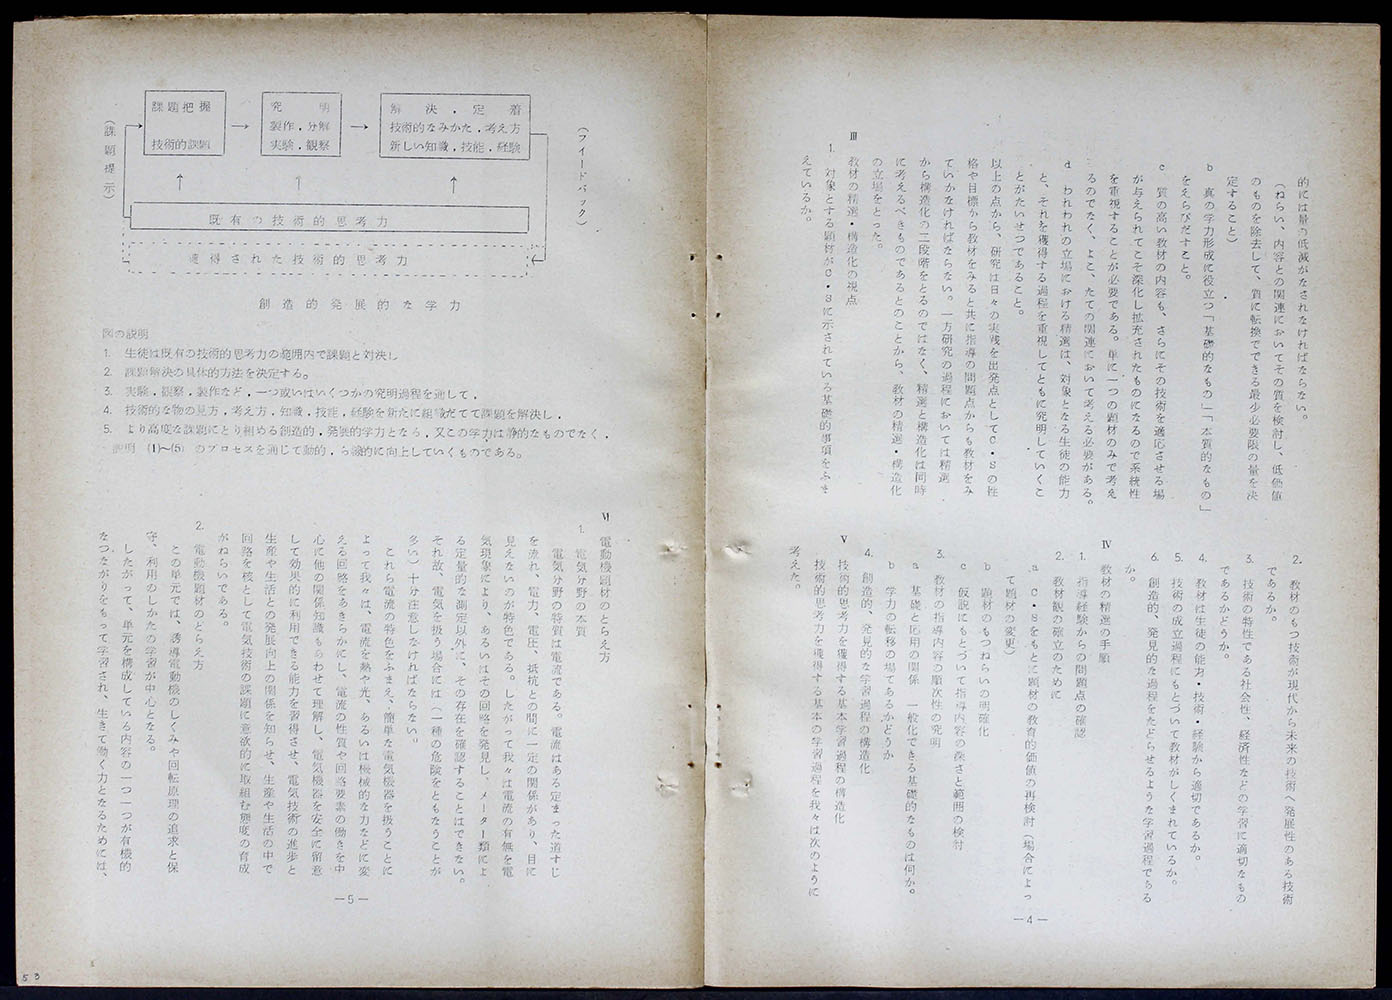 的には量の低減がなされなければならない。
（ねらい、内容との関連においてその質を検討し、低価値
のものを除去して、質に転換でできる最少必要限の量を決
定すること）
b　真の学力形成に役立つ「基礎的なもの」「本質的なもの」
をえらびだすこと。
c　質の高い教材の内容も、さらにその技術を適応させる場
が与えられてこそ深化し拡充されたものになるので系統性
を重視することが必要である。単に一つの題材のみで考え
るのでなく、よこ、たての関連において考える必要がある。
d　われわれの立場における精選は、対象となる生徒の能力
と、それを獲得する過程を重視してともに究明していくこ
とがたいせつであること。
以上の点から、研究は日々の実践を出発点としてC・Sの性
格や目標から教材をみると共に指導の問題点からも教材をみ
ていかなければならない。一方研究の過程においては精選
から構造化の二段階をとるのではなく、精選と構造化は同時
に考えるべきものであるとのことから、教材の精選・構造化
の立場をとった。
Ⅲ　教材の精選・構造化の視点
1.　対象とする題材がC・Sに示されている基礎的事項をふま
えているか。
2.　教材のもつ技術が現代から未来の技術へ発展性のある技術
であるか。
3.　技術の特性である社会性、経済性などの学習に適切なもの
であるかどうか。
4.　教材は生徒の能力・技術・経験から適切であるか。
5.　技術の成立過程にもとづいて教材がしくまれているか。
6.　創造的、発見的な過程をたどらせるような学習過程である
か。
Ⅳ　教材の精選の手順
1.　指導経験からの問題点の確認
2.　教材観の確立のために
a　C・Sをもとに題材の教育的価値の再検討（場合によっ
て題材の変更）
b　題材のもつねらいの明確化
c　仮説にもとづいて指導内容の深さと範囲の検討
3.　教材の指導内容の順次性の究明
a　基礎と応用の関係　一般化できる基礎的なものは何か。
b　学力の転移の場であるかどうか
4.　創造的、発見的な学習過程の構造化
Ⅴ　技術的思考力を獲得する基本学習過程の構造化
技術的思考力を獲得する基本の学習過程を我々は次のように
考えた。
—4—
（フイードバック）
（課題提示）
課題把握
技術的課題
究　明
製作．分解
実験．観察
解　決．定　着
技術的なみかた．考え方
新しい知識．技能．経験
既有の技術的思考力
獲得された技術的思考力
創造的発展的な学力
図の説明
1.　生徒は既有の技術的思考力の範囲内で課題と対決し
2.　課題解決の具体的方法を決定する。
3.　実験．観察．製作など．一つ或いはいくつかの究明過程を通して．
4.　技術的な物の見方．考え方．知識．技能．経験を新たに組織だてて課題を解決し．
5.　より高度な課題にとり組める創造的．発展的学力となる．又この学力は静的なものでなく．
説明　(1)〜(5)　のプロセスを通じて動的．ら線的に向上していくものである。
Ⅵ　電動機題材のとらえ方
1.　電気分野の本質
電気分野の特質は電流である。電流はある定まった道すじ
を流れ、電力、電圧、抵抗との間に一定の関係があり、目に
見えないのが特色である。したがって我々は電流の有無を電
気現象により、あるいはその回路を発見し、メーター類によ
る定量的な測定以外に、その存在を確認することはできない。
それ故、電気を扱う場合には（一種の危険をともなうことが
多い）十分注意しなければならない。
これら電流の特色をふまえ、簡単な電気機器を扱うことに
よって我々は、電流を熱や光、あるいは機械的な力などに変
える回路をあきらかにし、電流の性質や回路要素の働きを中
心に他の関係知識もあわせて理解し、電気機器を安全に留意
して効果的に利用できる能力を習得させ、電気技術の進歩と
生産や生活との発展向上の関係を知らせ、生産や生活の中で
回路を核として電気技術の課題に意欲的に取組む態度の育成
がねらいである。
2.　電動機題材のとらえ方
この単元では、誘導電動機のしくみや回転原理の追求と保
守、利用のしかたの学習が中心となる。
したがって、単元を構成している内容の一つ一つが有機的
なつながりをもって学習され、生きて働く力となるためには、
—5—
53